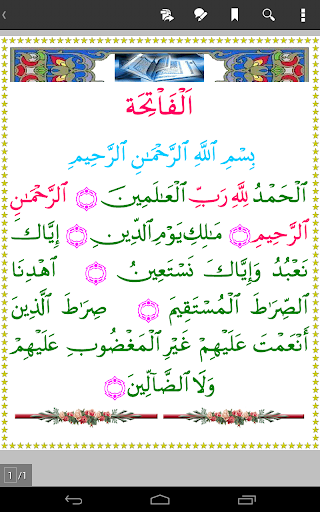 اَلْفَاْتِحَة
بِسْمِ ٱللَّهِ ٱلرَّحْمَـٰنِ ٱلرَّحِيمِ
ٱلْحَمْدُ لِلَّهِ رَبِّ ٱلْعَـٰلَمِينَ ۝ ٱلرَّحْمَـٰنِ
ٱلرَّحِيمِ ۝ مَـٰلِكِ يَوْمِ ٱلدِّينِ ۝ إِيَّاكَ
نَعْبُدُ وَإِيَّاكَ نَسْتَعِينُ ۝ ٱهْدِنَا
ٱلصِّرَٰطَ ٱلْمُسْتَقِيمَ ۝ صِرَٰطَ ٱلَّذِينَ
أَنْعَمْتَ عَلَيْهِمْ غَيْرِ ٱلْمَغْضُوبِ عَلَيْهِمْ
وَلَا ٱلضَّآلِّينَ ۝
1 /1